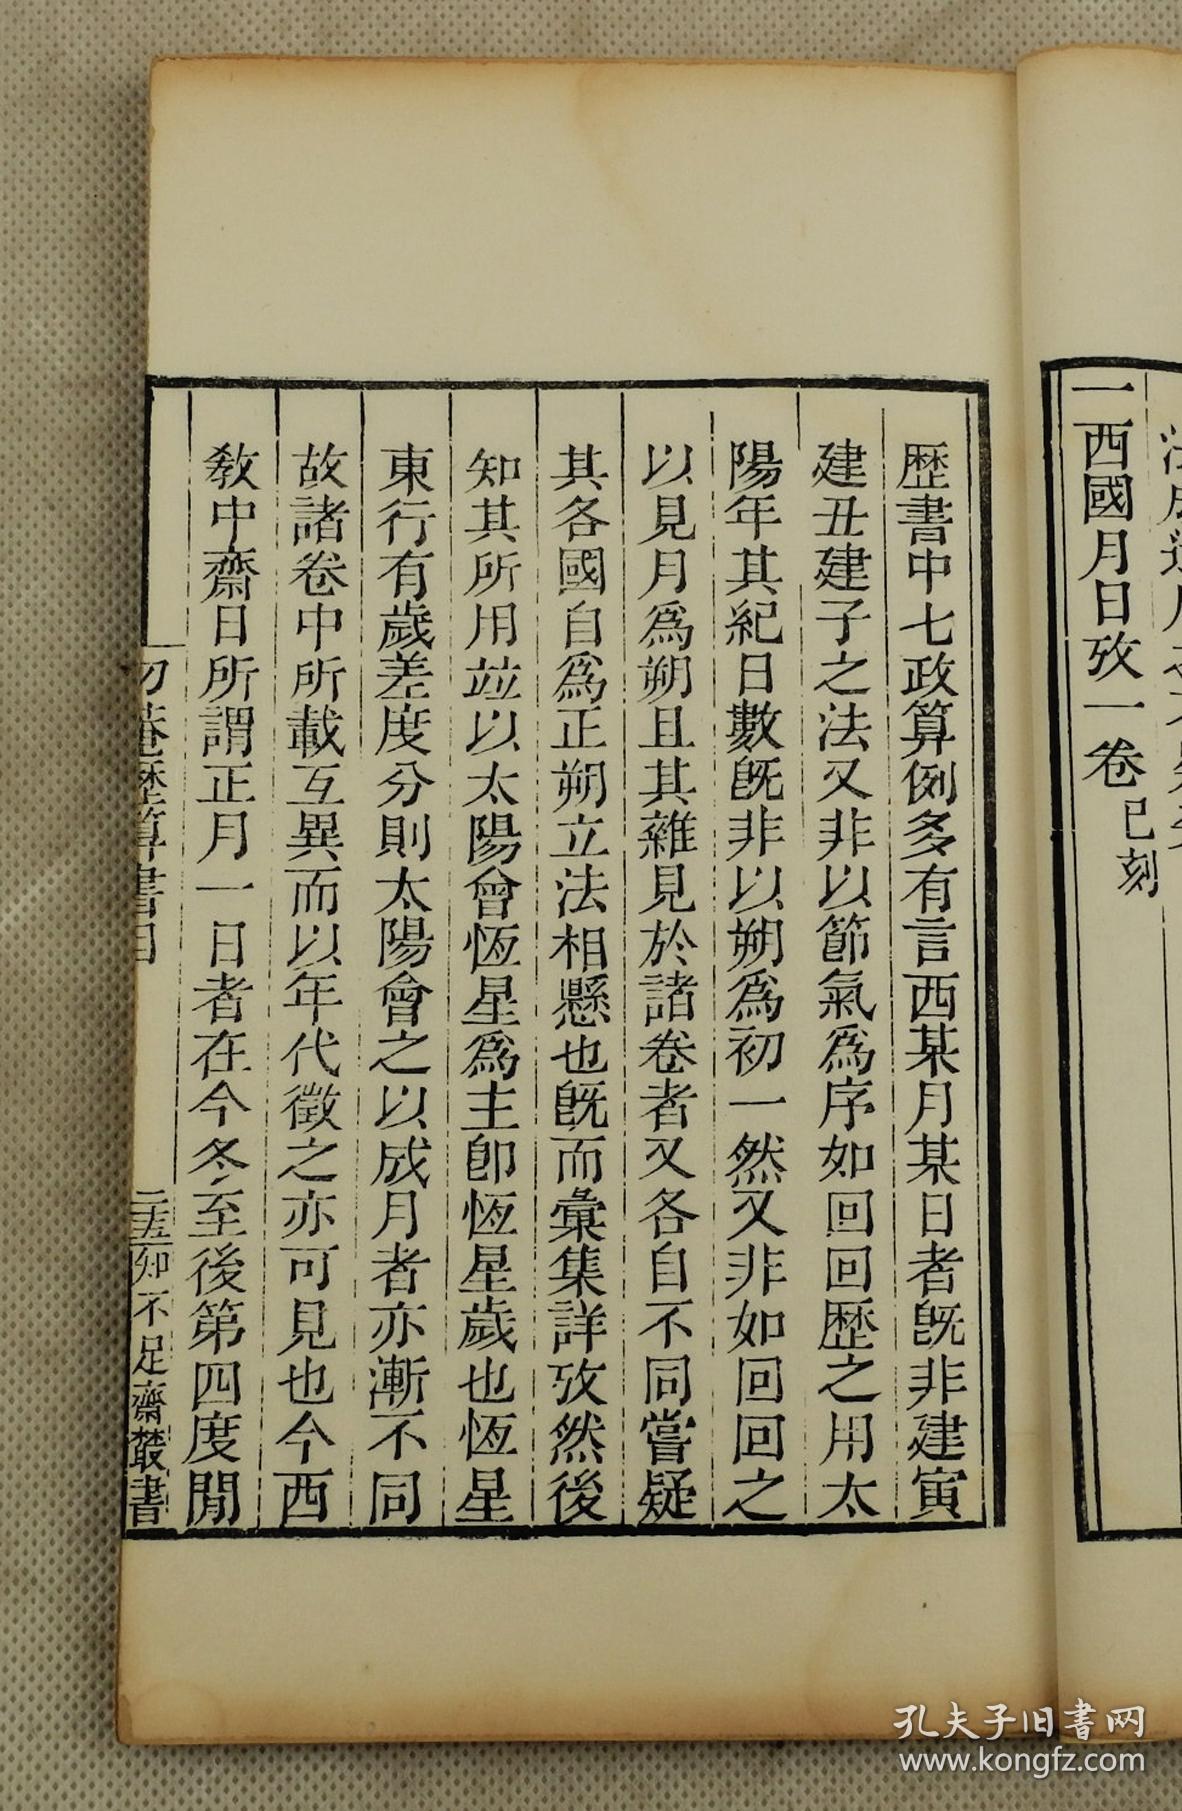 一西國月日攷一卷已刻
歷書中七政算例多有言西某月某日者旣非建寅
建丑建子之法又非以節氣爲序如回回歷之用太
陽年其紀日數旣非以朔爲初一然又非如回回之
以見月爲朔且其雜見於諸卷者又各自不同嘗疑
其各國自爲正朔立法相懸也旣而彙集詳攷然後
知其所用竝以太陽會恆星爲主卽恆星歲也恆星
東行有歲差度分則太陽會之以成月者亦漸不同
故諸卷中所載互異而以年代徵之亦可見也今西
敎中齋日所謂正月一日者在今冬至後第四度閒
勿菴歷算書目
二十五
知不足齋叢書
孔夫子旧書网
www.kongfz.com